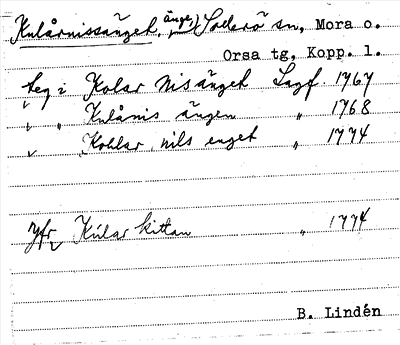 Kulårnissänget, änge, Sollerö sn, Mora o.
Orsa tg, Kopp. l.
teg i Kolar Nisänget Lagf. 1767
" " Kulånis ängen " 1768
" Kohlar nils enget " 1774
Jfr Kúlar kittan " 1774
B. Lindén